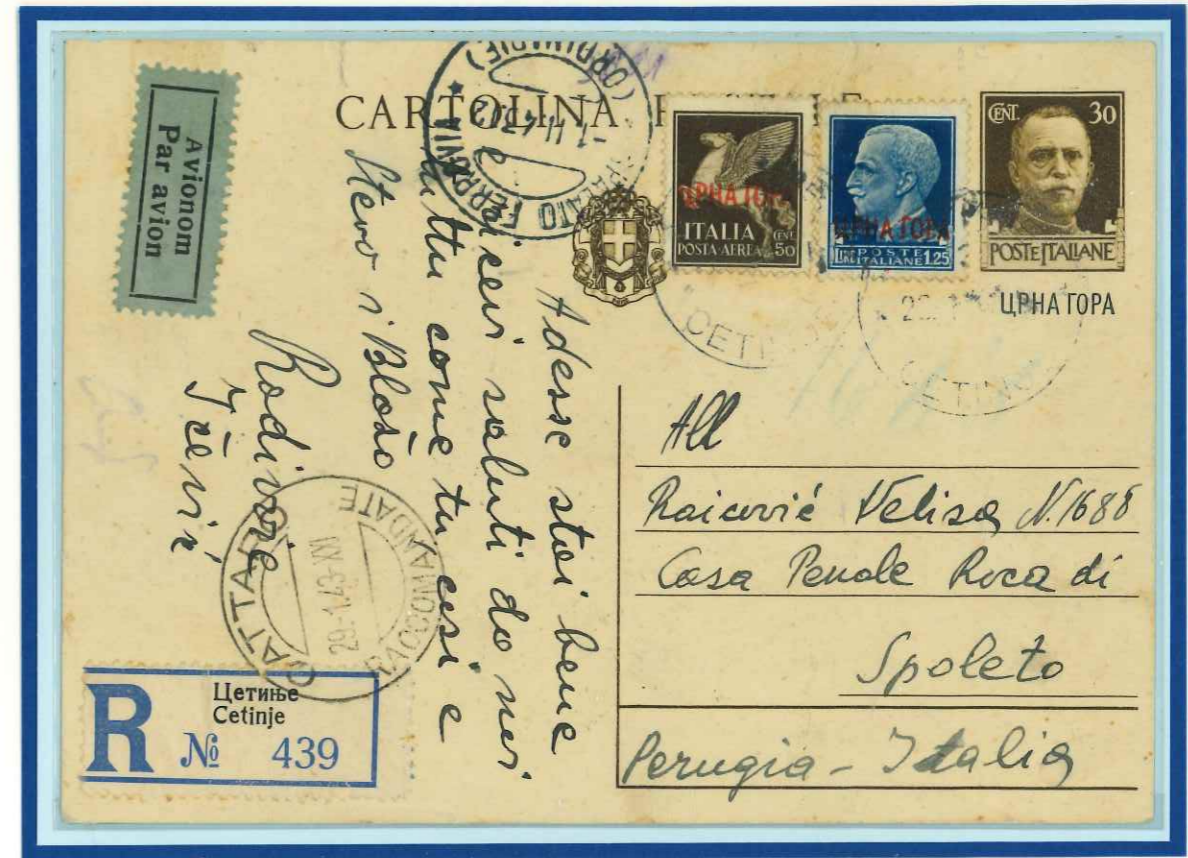 CARTOLINA
Avionom
Par avion
ЦРНА ГОРА
ITALIA
POSTA-AEREA
CENT. 50
ЦРНА ГОРА
POSTE
ITALIANE
LIRE 1.25
CENT. 30
POSTE ITALIANE
ЦРНА ГОРА
FERROVIA
CETINJE
CETINJE
Adesse stai bene
e ricevi saluti da
tu come tu cosi e
Stevo i Blošo
CATTARO
29.1.43-XXI
RACCOMANDATE
R
Цетиње
Cetinje
№ 439
All
Raicević Velisa N.1688
Casa Penale Roca di
Spoleto
Perugia - Italia